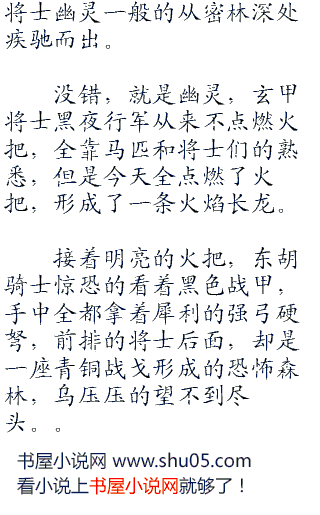 将士幽灵一般的从密林深处
疾驰而出。
没错，就是幽灵，玄甲
将士黑夜行军从来不点燃火
把，全靠马匹和将士们的熟
悉，但是今天全点燃了火
把，形成了一条火焰长龙。
接着明亮的火把，东胡
骑士惊恐的看着黑色战甲，
手中全都拿着犀利的强弓硬
弩，前排的将士后面，却是
一座青铜战戈形成的恐怖森
林，乌压压的望不到尽
头。。
书屋小说网 www.shu05.com
看小说上书屋小说网就够了！